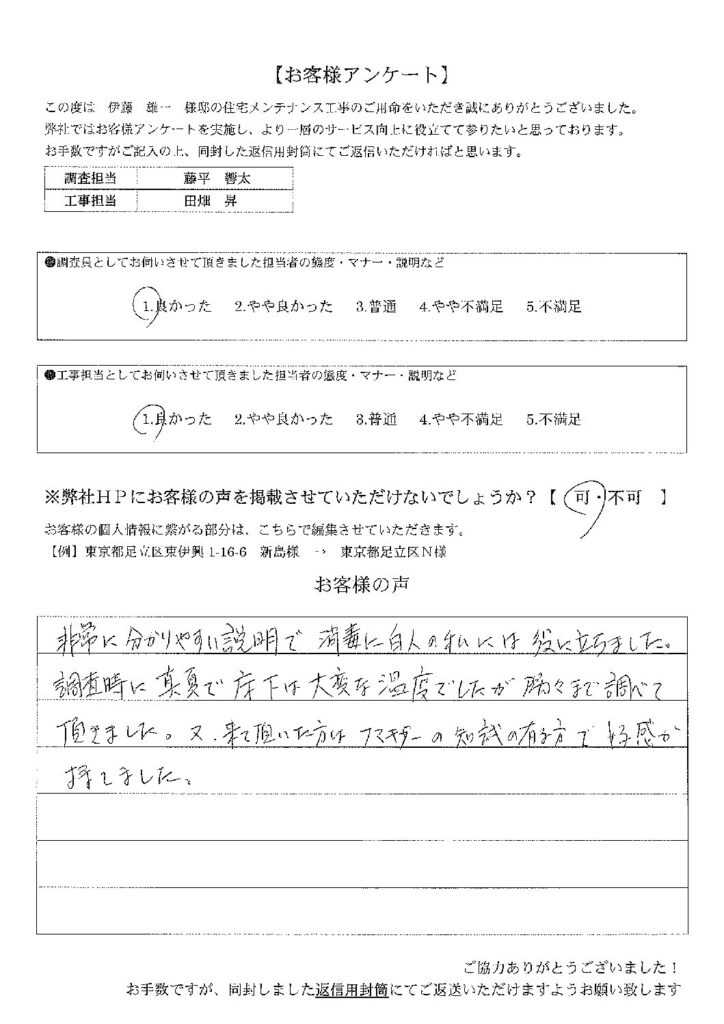 【お客様アンケート】
この度は 伊藤 雄一 様邸の住宅メンテナンス工事のご用命をいただき誠にありがとうございました。
弊社ではお客様アンケートを実施し、より一層のサービス向上に役立てて参りたいと思っております。
お手数ですがご記入の上、同封した返信用封筒にてご返信いただければと思います。
調査担当 藤平 響太
工事担当 田畑 昇
●調査員としてお伺いさせて頂きました担当者の態度・マナー・説明など
1.良かった 2.やや良かった 3.普通 4.やや不満足 5.不満足
●工事担当としてお伺いさせて頂きました担当者の態度・マナー・説明など
1.良かった 2.やや良かった 3.普通 4.やや不満足 5.不満足
※弊社HPにお客様の声を掲載させていただけないでしょうか？【 可・不可 】
お客様の個人情報に繋がる部分は、こちらで編集させていただきます。
【例】東京都足立区東伊興 1-16-6 新島様 → 東京都足立区N様
お客様の声
非常に分かりやすい説明で 消毒に白人の私には 役に立ちました。
調査時に 真夏で 床下は 大変な 温度でしたが 隅々まで 調べて
頂きました。又、来て頂いた方は フマキラーの 知識の有る方で 好感が
持てました。
ご協力ありがとうございました！
お手数ですが、同封しました返信用封筒にてご返送いただけますようお願い致します